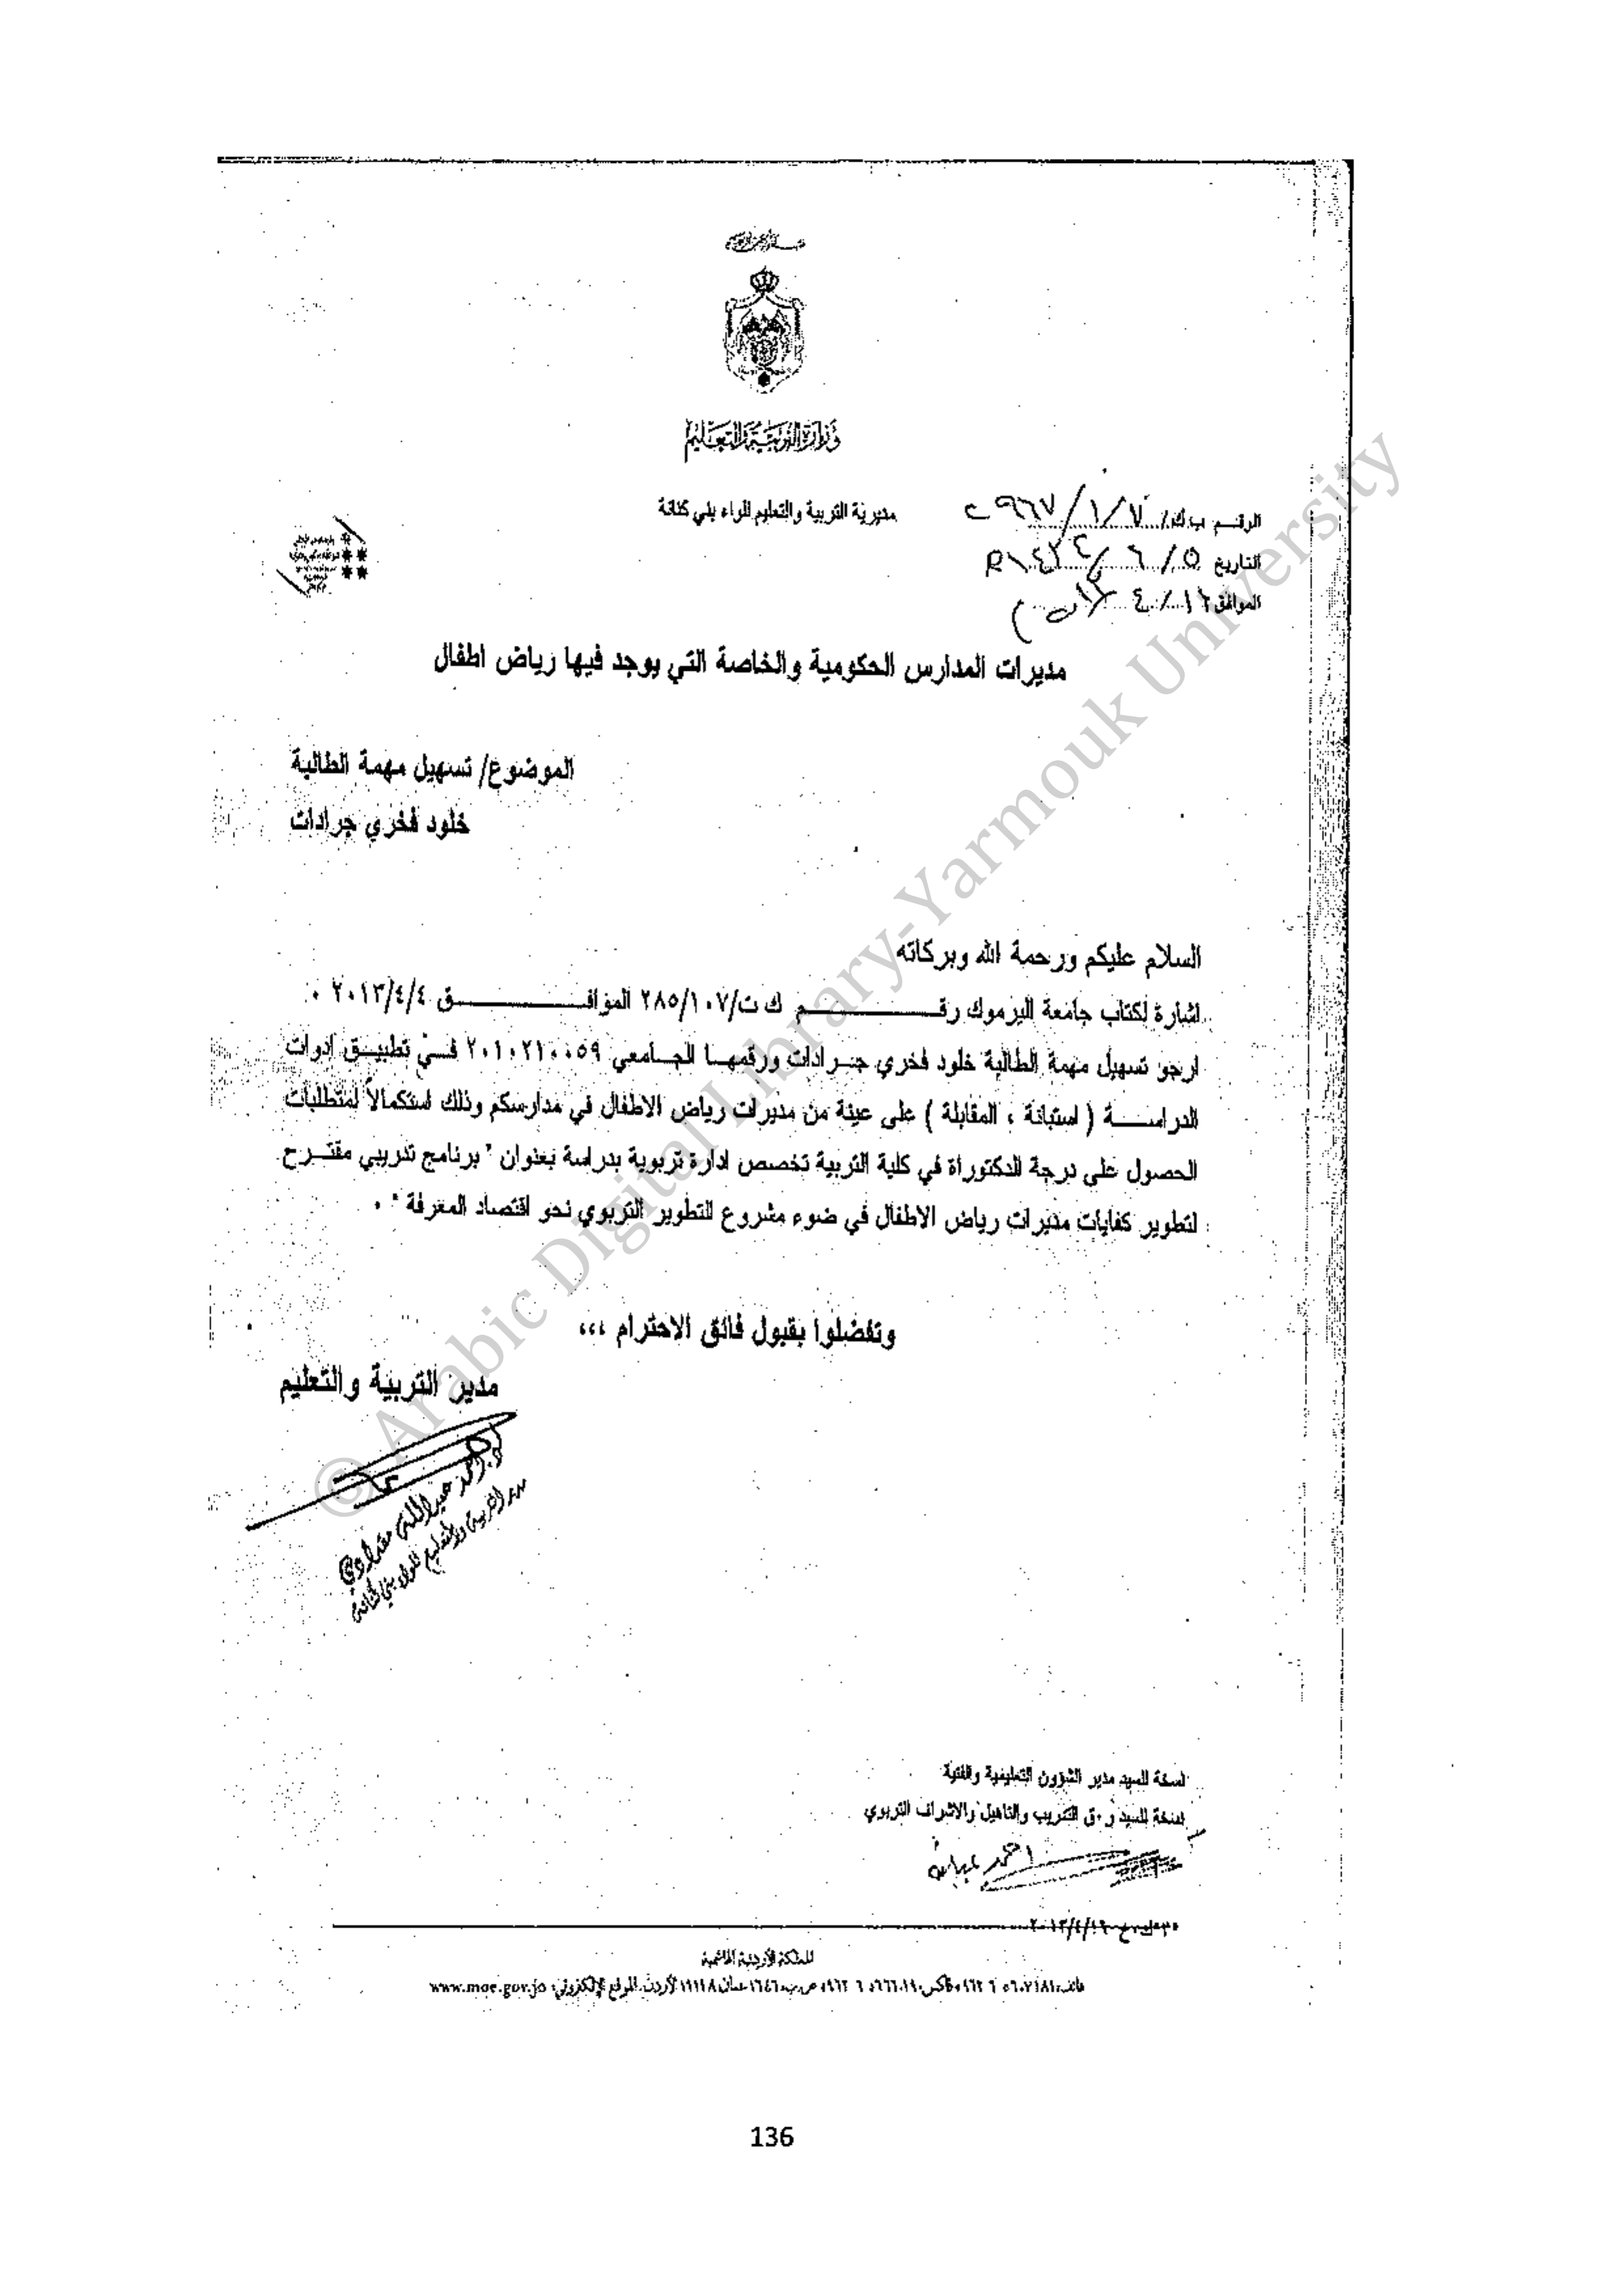 وزارة التربية والتعليم
مديرية التربية والتعليم للواء بني كنانة
الرقم ب ك/ ٧/١/٢٩٦٧
التاريخ ٥/٦/١٤٣٤
الموافق ١٦/٤/
مديرات المدارس الحكومية والخاصة التي يوجد فيها رياض اطفال
الموضوع/ تسهيل مهمة الطالبة
خلود فخري جرادات
السلام عليكم ورحمة الله وبركاته
اشارة لكتاب جامعة اليرموك رقم ك ت/٢٨٥/١٠٧ الموافق ٢٠١٣/٤/٤ .
ارجو تسهيل مهمة الطالبة خلود فخري جرادات ورقمها الجامعي ٢٠١٠٢١٠٠٥٩ في تطبيق ادوات
الدراسة ( استبانة ، المقابلة ) على عينة من مديرات رياض الاطفال في مدارسكم وذلك استكمالاً لمتطلبات
الحصول على درجة الدكتوراة في كلية التربية تخصص ادارة تربوية بدراسة بعنوان " برنامج تدريبي مقترح
لتطوير كفايات مديرات رياض الاطفال في ضوء مشروع التطوير التربوي نحو اقتصاد المعرفة " .
وتفضلوا بقبول فائق الاحترام ،،،
مدير التربية والتعليم
مدير التربية والتعليم للواء بني كنانة
نسخة للسيد مدير الشؤون التعليمية والفنية
نسخة للسيد ر.ق التدريب والتاهيل والاشراف التربوي
المملكة الأردنية الهاشمية
الموقع الإلكتروني: www.moe.gov.jo
© Arabic Digital Library-Yarmouk University
136